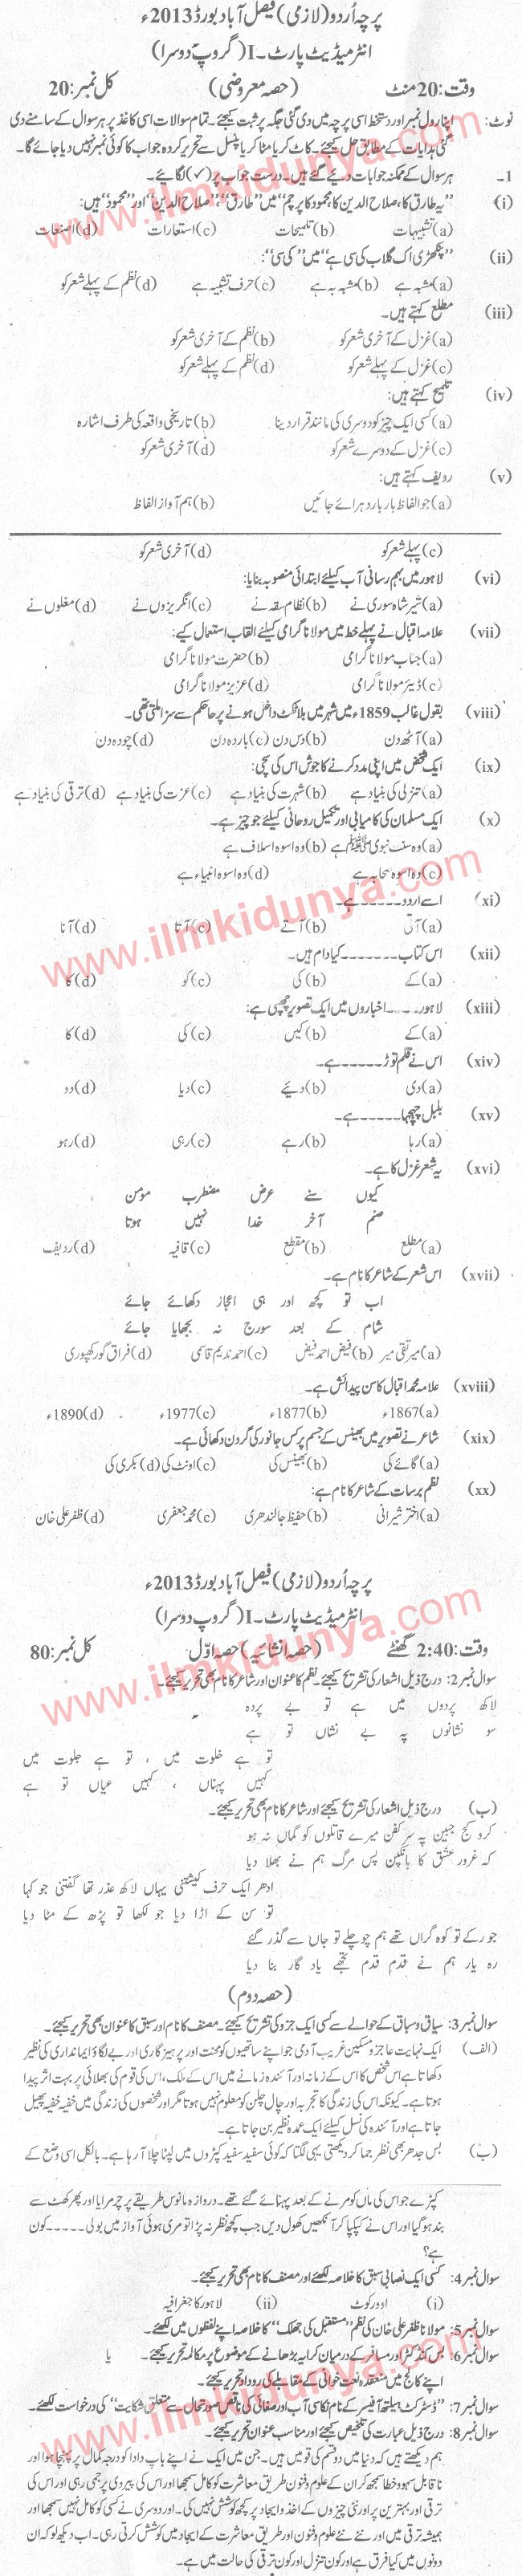 پرچہ اُردو (لازمی) فیصل آباد بورڈ 2013ء
انٹرمیڈیٹ پارٹ۔I (گروپ دوسرا)
وقت: 20 منٹ (حصہ معروضی) کل نمبر: 20
نوٹ: اپنا رول نمبر اور دستخط اسی پرچہ میں دی گئی جگہ پر ثبت کیجئے۔ تمام سوالات اسی کاغذ پر ہر سوال کے سامنے دی
گئی ہدایات کے مطابق حل کیجئے۔ کاٹ کر یا مٹا کر یا پنسل سے تحریر کردہ جواب کا کوئی نمبر نہیں دیا جائے گا۔
1- ہر سوال کے ممکنہ جوابات دیئے گئے ہیں۔ درست جواب پر (✓) لگائیے۔
(i) "یہ طارق کا، صلاح الدین کا، محمود کا پرچم" میں "طارق"، "صلاح الدین" اور "محمود" ہیں:
(a) تشبیہات (b) تلمیحات (c) استعارات (d) صنعات
(ii) "پنکھڑی اک گلاب کی سی ہے" میں "کی سی":
(a) مشبہ ہے (b) مشبہ بہ ہے (c) حرف تشبیہ ہے (d) نظم کے پہلے شعر کو
(iii) مطلع کہتے ہیں۔
(a) غزل کے آخری شعر کو (b) نظم کے آخری شعر کو
(c) غزل کے پہلے شعر کو (d) نظم کے پہلے شعر کو
(iv) تلمیح کہتے ہیں:
(a) کسی ایک چیز کو دوسری کی مانند قرار دینا (b) تاریخی واقعہ کی طرف اشارہ
(c) غزل کے دوسرے شعر کو (d) آخری شعر کو
(v) ردیف کہتے ہیں:
(a) جو الفاظ بار بار دہرائے جائیں (b) ہم آواز الفاظ
(c) پہلے شعر کو (d) آخری شعر کو
(vi) لاہور میں بہم رسانی آب کیلئے ابتدائی منصوبہ بنایا:
(a) شیر شاہ سوری نے (b) نظام سقہ نے (c) انگریزوں نے (d) مغلوں نے
(vii) علامہ اقبال نے پہلے خط میں مولانا گرامی کیلئے القاب استعمال کیے:
(a) جناب مولانا گرامی (b) حضرت مولانا گرامی
(c) ڈیئر مولانا گرامی (d) عزیز مولانا گرامی
(viii) بقول غالب 1859ء میں شہر میں بلا ٹکٹ داخل ہونے پر حاکم سے سزا ملتی تھی۔
(a) آٹھ دن (b) دس دن (c) بارہ دن (d) چودہ دن
(ix) ایک شخص میں اپنی مدد کرنے کا جوش اس کی سچی:
(a) تنزلی کی بنیاد ہے (b) شہرت کی بنیاد ہے (c) عزت کی بنیاد ہے (d) ترقی کی بنیاد ہے
(x) ایک مسلمان کی کامیابی اور تکمیل روحانی کیلئے جو چیز ہے۔
(a) وہ سنت نبوی ﷺ ہے (b) وہ اسوہ اسلاف ہے
(c) وہ اسوہ صحابہ ہے (d) وہ اسوہ انبیاء ہے
(xi) اسے اردو ۔۔۔۔۔ ہے۔
(a) آتی (b) آتے (c) آتا (d) آنا
(xii) اس کتاب ۔۔۔۔۔۔ کیا دام ہیں۔
(a) کے (b) کی (c) کو (d) کا
(xiii) لاہور ۔۔۔۔ اخباروں میں ایک تصویر چھپی ہے:
(a) کے (b) کیں (c) کی (d) کا
(xiv) اس نے قلم توڑ ۔۔۔۔۔ ہے۔
(a) دی (b) دیئے (c) دیا (d) دو
(xv) بلبل چہچہا ۔۔۔۔۔ ہے۔
(a) رہا (b) رہے (c) رہی (d) رہو
(xvi) یہ شعر غزل کا ہے۔
کیوں سنے عرض مضطرب مومن
صنم آخر خدا نہیں ہوتا
(a) مطلع (b) مقطع (c) قافیہ (d) ردیف
(xvii) اس شعر کے شاعر کا نام ہے۔
اب تو کچھ اور ہی اعجاز دکھائے جائے
شام کے بعد سورج نہ بجھایا جائے
(a) میر تقی میر (b) فیض احمد فیض (c) احمد ندیم قاسمی (d) فراق گورکھپوری
(xviii) علامہ محمد اقبال کا سن پیدائش ہے۔
(a) 1867ء (b) 1877ء (c) 1977ء (d) 1890ء
(xix) شاعر نے تصویر میں بھینس کے جسم پر کس جانور کی گردن دکھائی ہے۔
(a) گائے کی (b) بھینس کی (c) اونٹ کی (d) بکری کی
(xx) نظم برسات کے شاعر کا نام ہے:
(a) اختر شیرانی (b) حفیظ جالندھری (c) محمد جعفری (d) ظفر علی خان
پرچہ اُردو (لازمی) فیصل آباد بورڈ 2013ء
انٹرمیڈیٹ پارٹ۔I (گروپ دوسرا)
وقت: 2:40 گھنٹے (حصہ انشائیہ) حصہ اوّل کل نمبر: 80
سوال نمبر 2: درج ذیل اشعار کی تشریح کیجئے۔ نظم کا عنوان اور شاعر کا نام بھی تحریر کیجئے۔
لاکھ پردوں میں ہے تو بے پردہ
سو نشانوں پہ بے نشاں تو ہے
تو ہے خلوت میں ، تو ہے جلوت میں
کہیں پنہاں ، کہیں عیاں تو ہے
(ب) درج ذیل اشعار کی تشریح کیجئے اور شاعر کا نام بھی تحریر کیجئے۔
کرو کج جبین پہ سر کفن میرے قاتلوں کو گماں نہ ہو
کہ غرور عشق کا بانکپن پس مرگ ہم نے بھلا دیا
ادھر ایک حرف کہ کشتنی یہاں لاکھ عذر تھا گفتنی جو کہا
تو سن کے اڑا دیا جو لکھا تو پڑھ کے مٹا دیا
جو رکے تو کوہ گراں تھے ہم جو چلے تو جاں سے گذر گئے
رہ یار ہم نے قدم قدم تجھے یادگار بنا دیا
(حصہ دوم)
سوال نمبر 3: سیاق و سباق کے حوالے سے کسی ایک جزو کی تشریح کیجئے۔ مصنف کا نام اور سبق کا عنوان بھی تحریر کیجئے۔
(الف) ایک نہایت عاجز و مسکین غریب آدمی جو اپنے ساتھیوں کو محنت اور پرہیزگاری اور بے لگاؤ ایمانداری کی نظیر
دکھاتا ہے اس شخص کا اس کے زمانہ اور آئندہ زمانے میں اس کے ملک، اس کی قوم کی بھلائی پر بہت اثر پیدا
ہوتا ہے۔ کیونکہ اس کی زندگی کا تجربہ اور چال چلن گو معلوم نہیں ہوتا مگر اور شخصوں کی زندگی میں خفیہ خفیہ پھیل
جاتا ہے اور آئندہ کی نسل کیلئے ایک عمدہ نظیر بن جاتا ہے۔
(ب) بس جدھر بھی نظر جما کر دیکھتی یہی لگتا کہ کوئی سفید سفید کپڑوں میں لپٹا چلا آ رہا ہے۔ بالکل اسی وضع کے
کپڑے جو اس کی ماں کو مرنے کے بعد پہنائے گئے تھے۔ دروازہ مانوس طریقے پر چرمرایا اور پھر کھٹ سے
بند ہو گیا اور اس نے کپکپا کر آنکھیں کھول دیں جب کچھ نظر نہ پڑا تو مری ہوئی آواز میں بولی ۔۔۔۔۔ کون
ہے؟
سوال نمبر 4: کسی ایک نصابی سبق کا خلاصہ لکھئے اور مصنف کا نام بھی تحریر کیجئے۔
(i) اوورکوٹ (ii) لاہور کا جغرافیہ
سوال نمبر 5: مولانا ظفر علی خان کی نظم "مستقبل کی جھلک" کا خلاصہ اپنے لفظوں میں لکھئے۔
سوال نمبر 6: بس کنڈکٹر اور مسافر کے درمیان کرایہ بڑھانے کے موضوع پر مکالمہ تحریر کیجئے۔ یا
اپنے کالج میں منعقدہ نعت خوانی کے مقابلے کی روداد تحریر کیجئے۔
سوال نمبر 7: "ڈسٹرکٹ ہیلتھ آفیسر کے نام نکاسی آب اور صفائی کی ناقص صورتحال سے متعلق شکایت" کی درخواست لکھئے۔
سوال نمبر 8: درج ذیل عبارت کی تلخیص کیجئے اور مناسب عنوان تحریر کیجئے۔
ہم دیکھتے ہیں کہ دنیا میں دو قسم کی قومیں ہیں۔ جن میں ایک نے اپنے باپ دادا کو درجہ کمال پر پہنچا ہوا اور
نا قابل سہو و خطا سمجھ کر ان کے علوم و فنون طریق معاشرت کو کامل سمجھا اور اس کی پیروی پر جمی رہی اور اس کی
ترقی اور بہترین پر اور نئی چیزوں کے اخذ و ایجاد پر کچھ کوشش نہیں کی۔ اور دوسری نے کسی کو کامل نہیں سمجھا اور
ہمیشہ ترقی میں اور نئے نئے علوم و فنون اور طریق معاشرت کے ایجاد میں کوشش کرتی رہی۔ اب دیکھ لو کہ ان
دونوں میں کیا فرق ہے اور کون تنزل اور کون ترقی کی حالت میں ہے۔
www.ilmkidunya.com
www.ilmkidunya.com
www.ilmkidunya.com
www.ilmkidunya.com